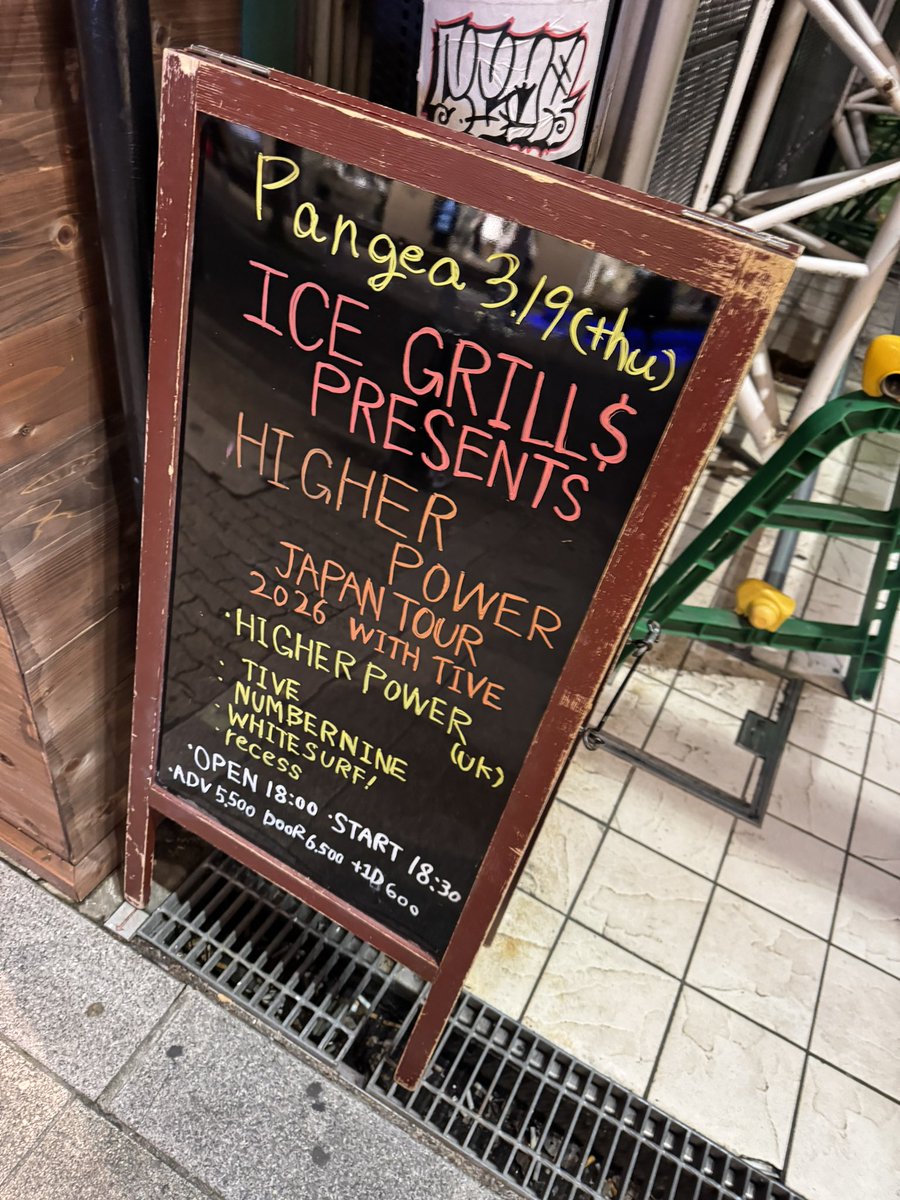 Pangea 3.19(thu)
ICE GRILL$
PRESENTS
HIGHER
POWER
JAPAN TOUR
2026 WITH TIVE
・HIGHER POWER (UK)
・TIVE
・NUMBERNINE
・WHITESURF!
・recess
・OPEN 18:00 ・START 18:30
・ADV 5,500 DOOR 6,500 +1D 600